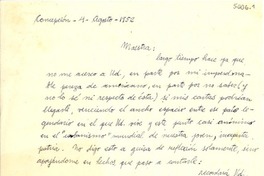 5004-1
Concepción - 4 - Agosto - 1952
Maestra:
Largo tiempo hace ya que
no me acerco a Ud., en parte por mi imperdona-
ble pereza de americano, en parte por no saber (y
no lo sé mi respecto de ésta) si mis cartas podrían
llegarle, venciendo el ancho espacio entre ese país le-
gendario en el que Ud. vive y este punto casi anónimo
en el mundial de nuestra joven, inexperta
patria. No digo esto a guisa de reflexión solamente, sino
apoyándome en hechos que paso a contarle:
Ud.